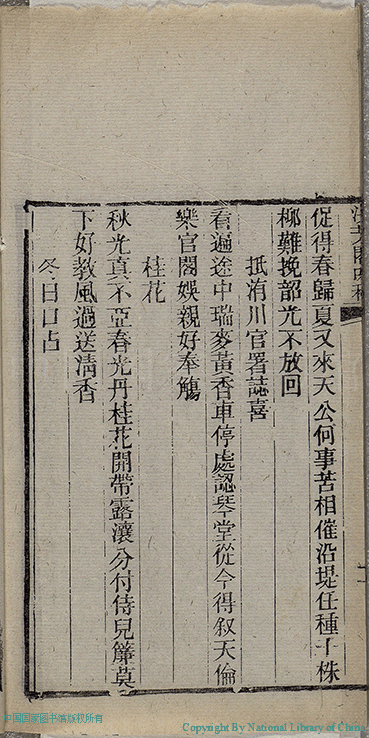 促得春歸夏又來天公何事苦相催沿堤任種千株
柳難挽韶光不放回
抵洧川官署誌喜
看遍途中瑞麥黃香車停處認琴堂從今得叙天倫
樂官閣娛親好奉觴
桂花
秋光真不亞春光丹桂花開帶露瀼分付侍兒簾莫
下好教風過送淸香
冬日口占
中国国家图书馆版权所有
Copyright By National Library of China